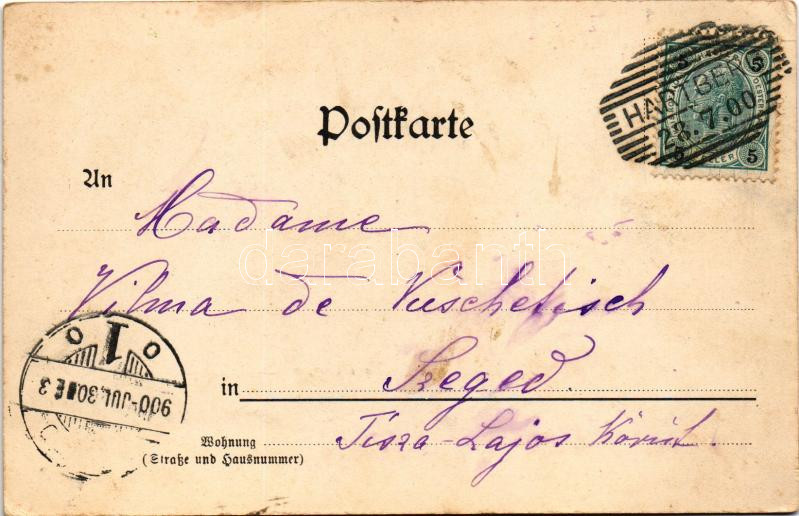 Postkarte
5
5
5
HELLER
28.7.00
3
An
Madame
Vilma de Vuschetisch
darabanth
in Szeged.
Wohnung
(Straße und Hausnummer)
Tisza-Lajos Körút.
1
900-JUL.30
3